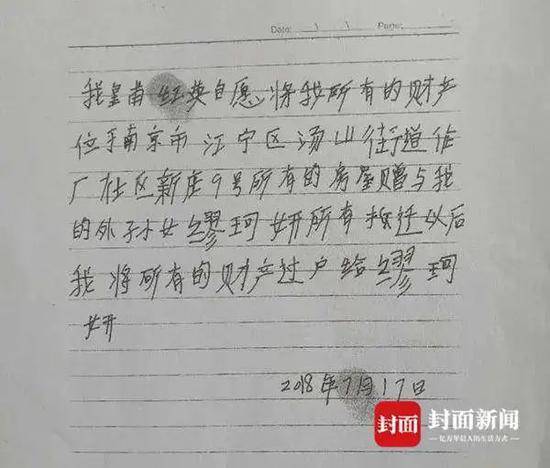 Date: / / Page:
我皇甫红英自愿将我所有的财产
位于南京市江宁区汤山街道作
厂社区新庄9号所有的房屋赠与我
的外孙女缪珂妍所有拆迁以后
我将所有的财产过户给缪珂
妍
2018年7月17日
封面 封面新闻
亿万年轻人的生活方式